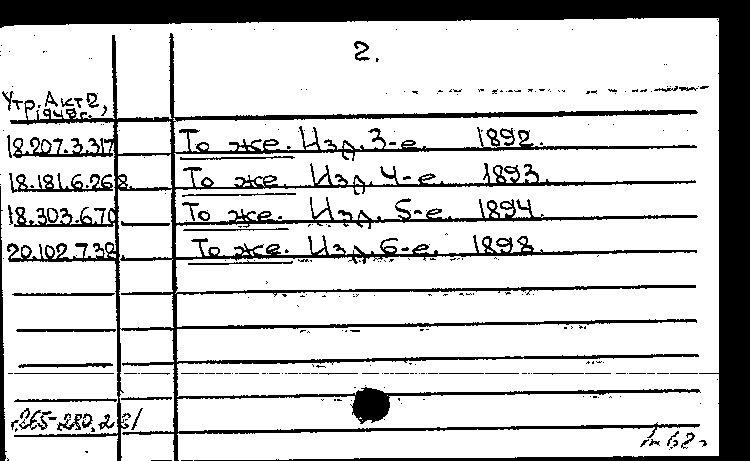 2.
Утр. Акт 2,
1948 г.
18.207.3.317 То же. Изд. 3-е. 1892.
18.181.6.268. То же. Изд. 4-е. 1893.
18.303.6.70. То же. Изд. 5-е. 1894.
20.102.7.38. То же. Изд. 6-е. 1898.
265-280, 2 81
68 г